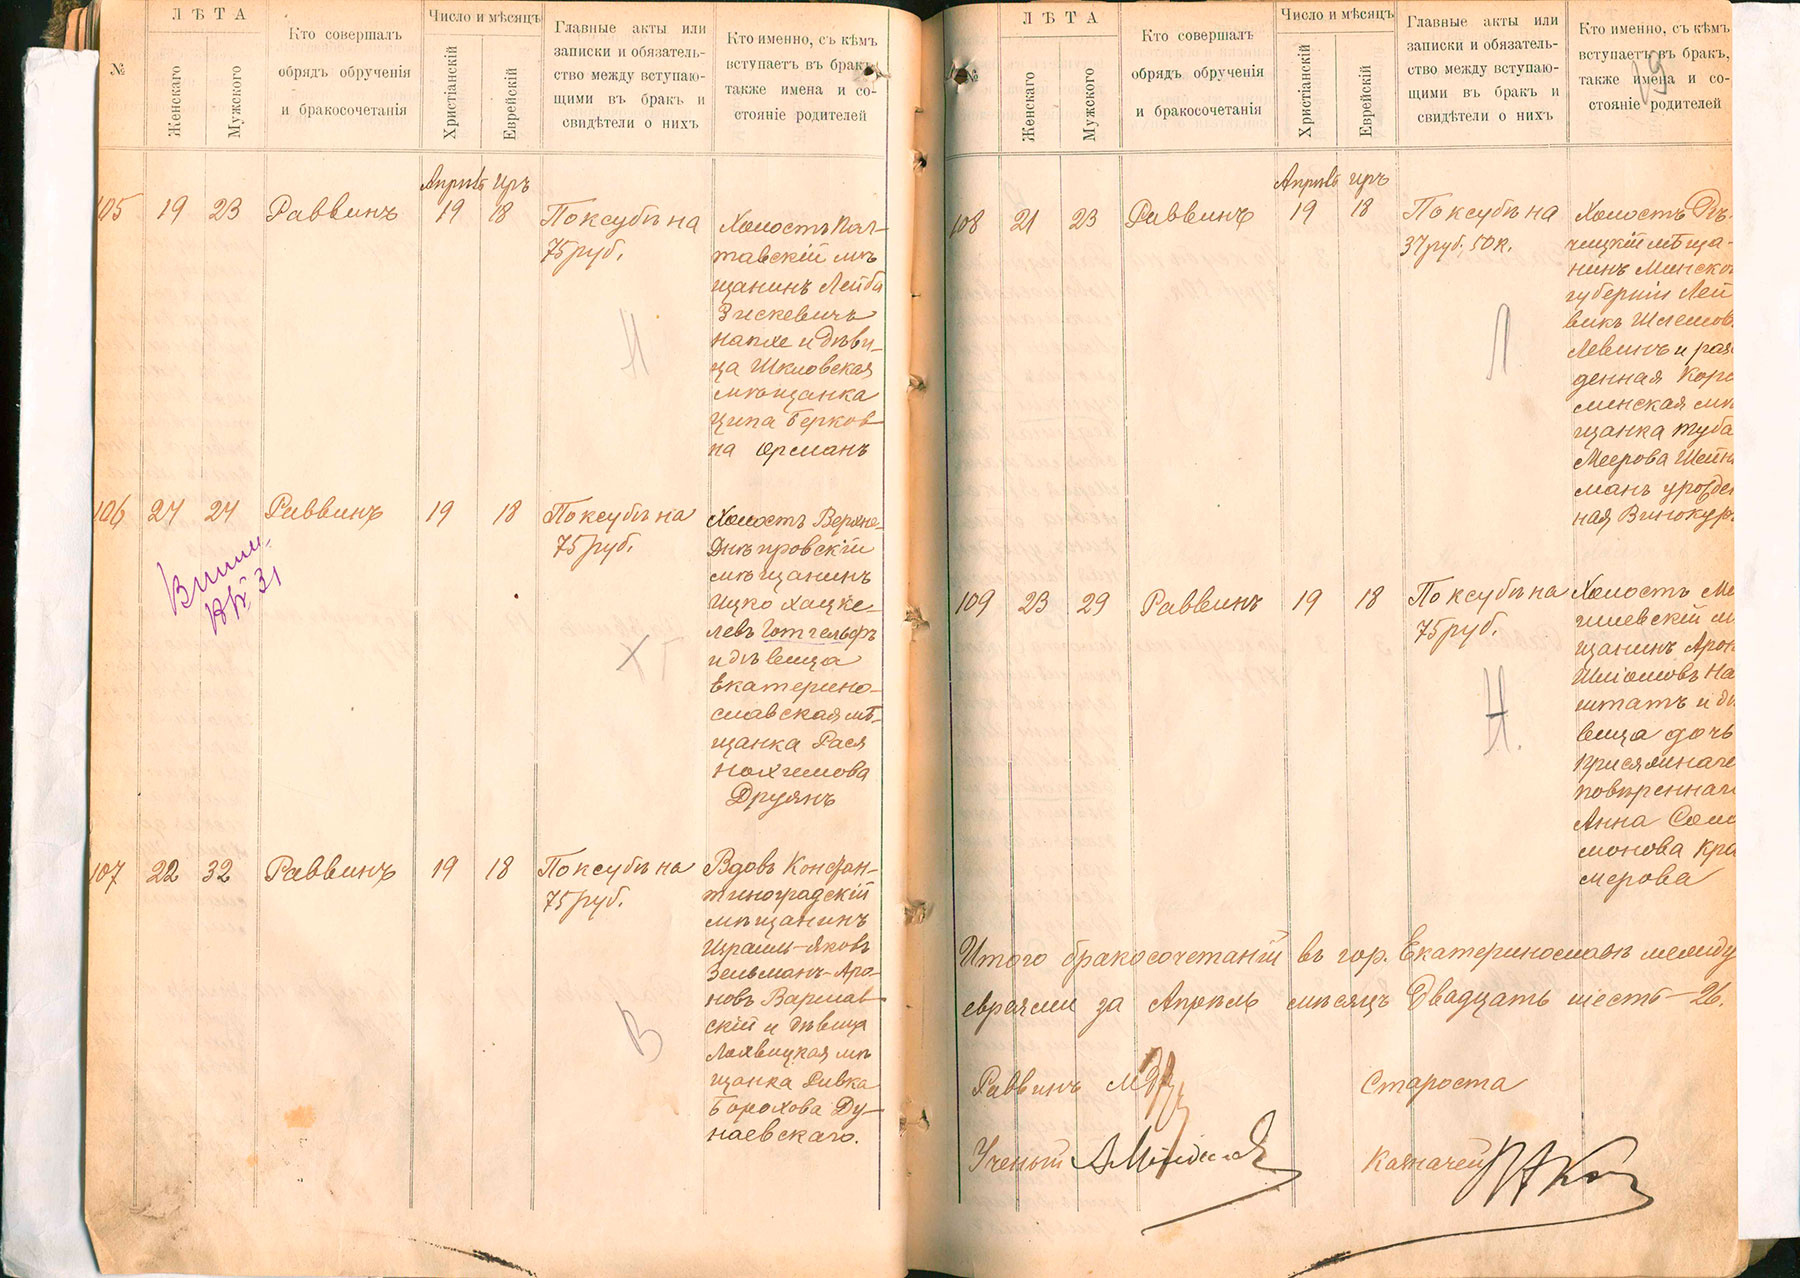 ЛѢТА
Число и мѣсяцъ
№
Женскаго
Мужского
Кто совершалъ
обрядъ обрученія
и бракосочетанія
Христіанскій
Еврейскій
Главные акты или
записки и обязатель-
ство между вступаю-
щими въ бракъ и
свидѣтели о нихъ
Кто именно, съ кѣмъ
вступаетъ въ бракъ
также имена и со-
стояніе родителей
Апрель Иръ
105 19 23 Раввинъ 19 18 По ксубѣ на
75 руб.
Холостъ Пол-
тавскій мѣ
щанинъ Лейба
Зискевичъ
Напхе и дѣви-
ца Шкловская
мѣщанка
Ципа Берков-
на Орманъ
Н
106 24 24 Раввинъ 19 18 По ксубѣ на
75 руб.
Холостъ Верхне-
Днѣпровскій
мѣщанинъ
Ицко Хацке-
левъ Готгельфъ
и дѣвица
Екатерино-
славская мѣ-
щанка Рася
Нохимова
Друянъ
107 22 32 Раввинъ 19 18 По ксубѣ на
75 руб.
Вдовъ Констан-
тиноградскій
мѣщанинъ
Израиль-Яковъ
Зельманъ-Аро-
новъ Варшав-
скій и дѣвица
Лохвицкая мѣ
щанка Ривка
Борохова Ду-
наевскаго.
В
ЛѢТА
Число и мѣсяцъ
№
Женскаго
Мужского
Кто совершалъ
обрядъ обрученія
и бракосочетанія
Христіанскій
Еврейскій
Главные акты или
записки и обязатель-
ство между вступаю-
щими въ бракъ и
свидѣтели о нихъ
Кто именно, съ кѣмъ
вступаетъ въ бракъ,
также имена и со-
стояніе родителей
19
Апрель Иръ
108 21 23 Раввинъ 19 18 По ксубѣ на
37 руб. 50 к.
Холостъ Рѣ-
чицкій мѣща-
нинъ Минской
губерніи Лей
викъ Шлемов
Левинъ и раз
денная Коро
минская мѣ
щанка Туба
Меерова Шейн
манъ урожден
ная Винокур
Л
109 23 29 Раввинъ 19 18 По ксубѣ на
75 руб.
Холостъ Мо
гилевскій м
щанинъ Арон
Шліомовъ На
штатъ и дѣ
вица дочь
присяжнаго
повѣреннаго
Анна Соло
монова Кра
мерова
Н.
Итого бракосочетаній въ гор. Екатеринославѣ между
евреями за Апрѣль мѣсяцъ двадцать шесть – 26.
Раввинъ Староста
Ученый Казначей